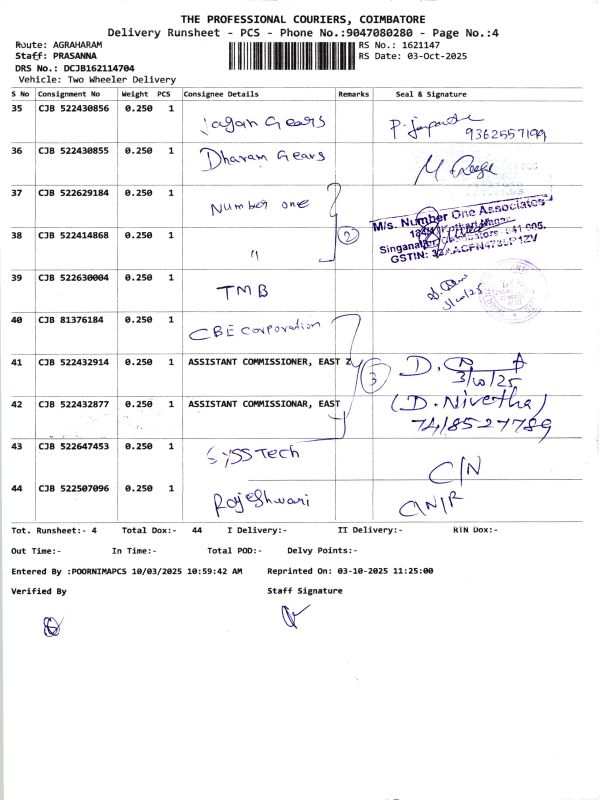 THE PROFESSIONAL COURIERS, COIMBATORE
Delivery Runsheet - PCS - Phone No.:9047080280 - Page No.:4
Route: AGRAHARAM
Staff: PRASANNA
DRS No.: DCJB162114704
Vehicle: Two Wheeler Delivery
RS No.: 1621147
RS Date: 03-Oct-2025
S No Consignment No Weight PCS Consignee Details Remarks Seal & Signature
35 CJB 522430856 0.250 1 Jagan Gears
9362557199
36 CJB 522430855 0.250 1 Dharam Gears
37 CJB 522629184 0.250 1 Number one
M/s. Number One Associates
38 CJB 522414868 0.250 1 " 2
39 CJB 522630004 0.250 1 TMB
3/10/25
40 CJB 81376184 0.250 1 CBE corporation
41 CJB 522432914 0.250 1 ASSISTANT COMMISSIONER, EAST Z 3
3/10/25
42 CJB 522432877 0.250 1 ASSISTANT COMMISSIONAR, EAST (D. Nivetha)
7418527789
43 CJB 522647453 0.250 1 SYSS Tech C/N
44 CJB 522507096 0.250 1 Rajeshwari CN/R
Tot. Runsheet:- 4 Total Dox:- 44 I Delivery:- II Delivery:- RTN Dox:-
Out Time:- In Time:- Total POD:- Delvy Points:-
Entered By :POORNIMAPCS 10/03/2025 10:59:42 AM Reprinted On: 03-10-2025 11:25:00
Verified By Staff Signature